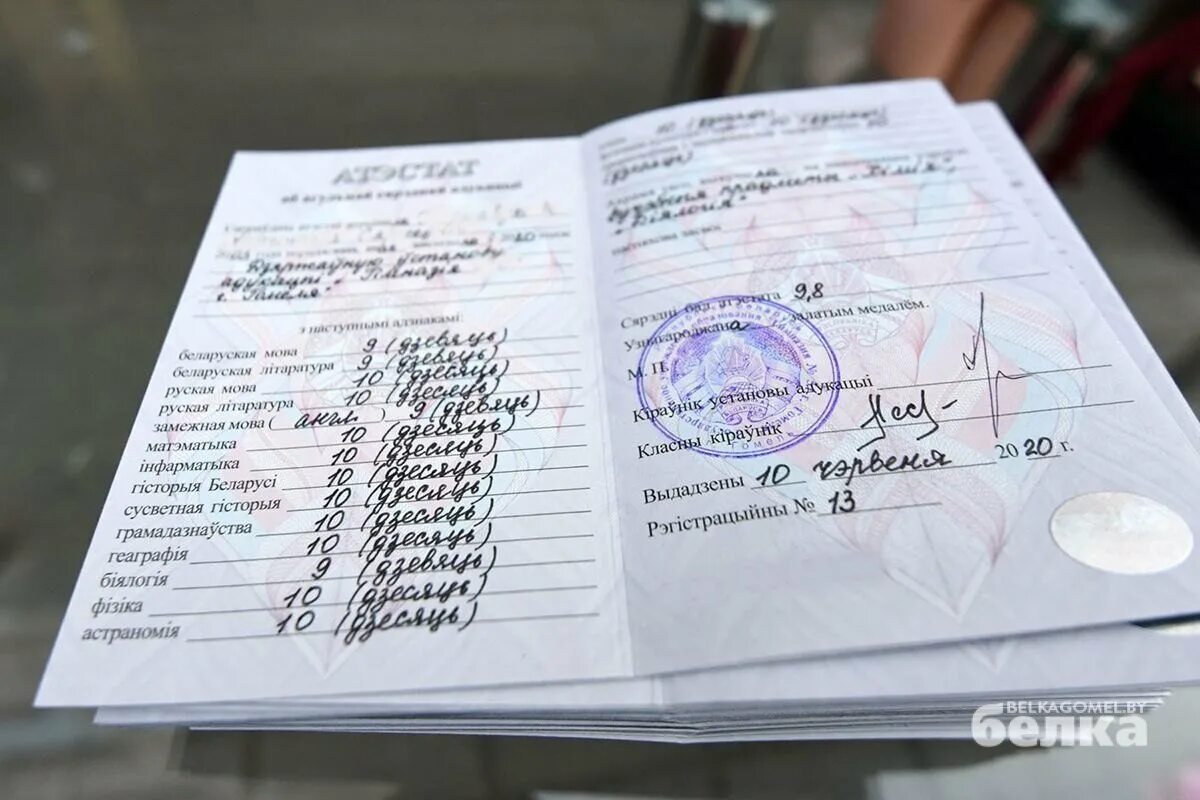 АТЭСТАТ
аб агульнай сярэдняй адукацыі
2020
Дзяржаўную ўстанову
адукацыі "Гімназія
г. Гомеля"
з наступнымі адзнакамі:
беларуская мова 9 (дзевяць)
беларуская літаратура 9 (дзевяць)
руская мова 10 (дзесяць)
руская літаратура 10 (дзесяць)
замежная мова ( англ. ) 9 (дзевяць)
матэматыка 10 (дзесяць)
інфарматыка 10 (дзесяць)
гісторыя Беларусі 10 (дзесяць)
сусветная гісторыя 10 (дзесяць)
грамадазнаўства 10 (дзесяць)
геаграфія 10 (дзесяць)
біялогія 9 (дзевяць)
фізіка 10 (дзесяць)
астраномія 10 (дзесяць)
10 (дзесяць)
"Біялогія"
Сярэдні бал атэстата 9,8
Узнагароджана залатым медалём.
М. П.
Кіраўнік установы адукацыі
Класны кіраўнік
Выдадзены 10 чэрвеня 2020 г.
Рэгістрацыйны № 13
BELKAGOMEL.BY
белка